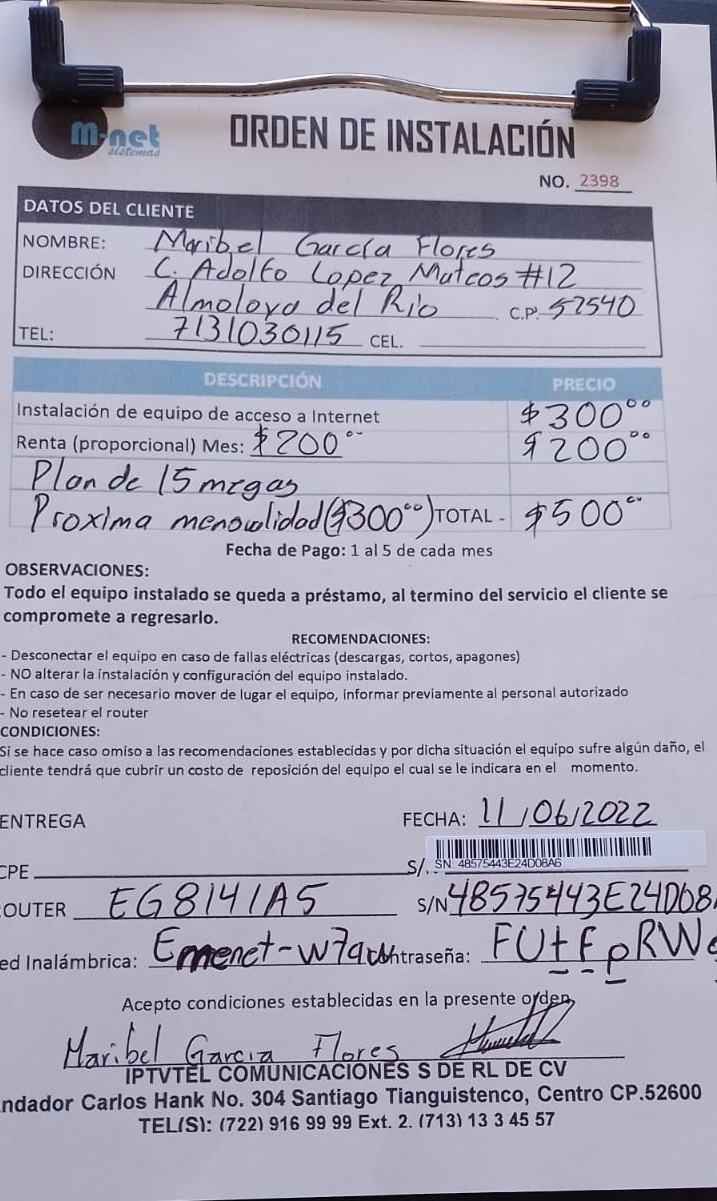 M-net
sistemas
ORDEN DE INSTALACIÓN
NO. 2398
DATOS DEL CLIENTE
NOMBRE: Maribel García Flores
DIRECCIÓN C. Adolfo Lopez Mateos #12
Almoloya del Rio C.P. 52540
TEL: 7131030115 CEL.
DESCRIPCIÓN PRECIO
Instalación de equipo de acceso a Internet $300.00
Renta (proporcional) Mes: $200.00 $200.00
Plan de 15 megas
Proxima mensualidad ($300.00) TOTAL - $500.00
Fecha de Pago: 1 al 5 de cada mes
OBSERVACIONES:
Todo el equipo instalado se queda a préstamo, al termino del servicio el cliente se
compromete a regresarlo.
RECOMENDACIONES:
- Desconectar el equipo en caso de fallas eléctricas (descargas, cortos, apagones)
- NO alterar la instalación y configuración del equipo instalado.
- En caso de ser necesario mover de lugar el equipo, informar previamente al personal autorizado
- No resetear el router
CONDICIONES:
Si se hace caso omiso a las recomendaciones establecidas y por dicha situación el equipo sufre algún daño, el
cliente tendrá que cubrir un costo de reposición del equipo el cual se le indicara en el momento.
ENTREGA FECHA: 11/06/2022
CPE S/. SN: 48575443E24D08A6
OUTER EG8141A5 S/N 48575443E24D08
ed Inalámbrica: ntraseña: FUtFpRW
Acepto condiciones establecidas en la presente orden
Maribel Garcia Flores
IPTVTEL COMUNICACIONES S DE RL DE CV
ndador Carlos Hank No. 304 Santiago Tianguistenco, Centro CP.52600
TEL(S): (722) 916 99 99 Ext. 2. (713) 13 3 45 57